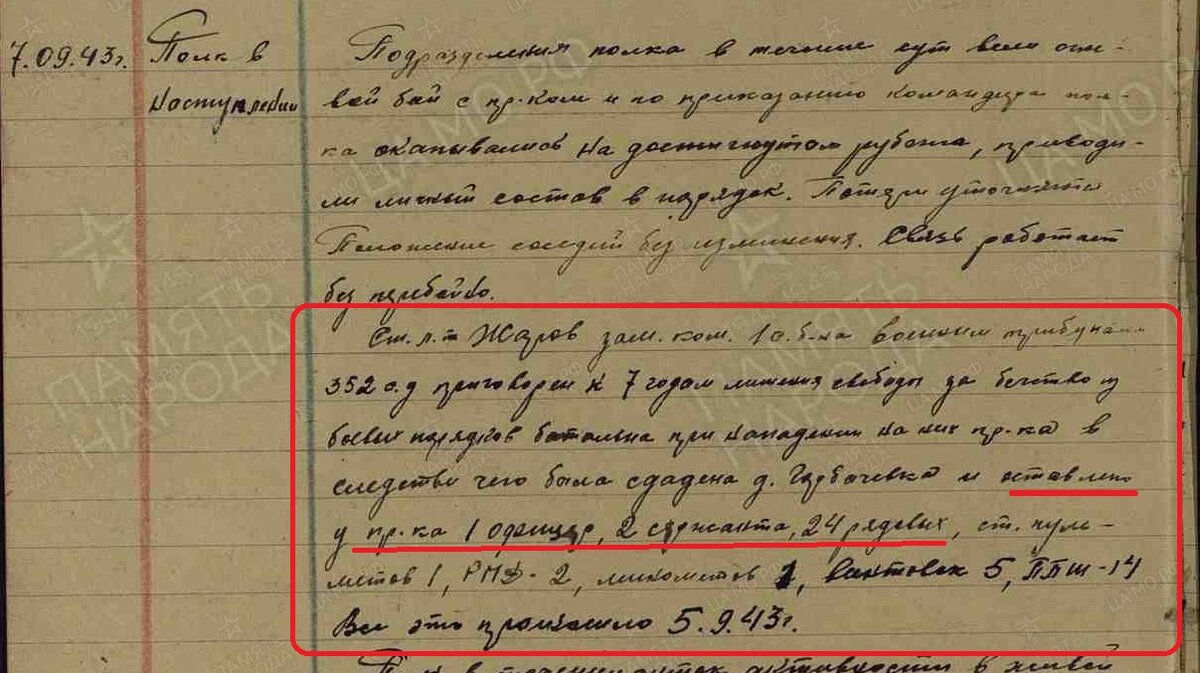 7.09.43г. Полк в Подразделения полка в течение сут вели огне-
наступлении вой бой с пр-ком и по приказанию командира пол-
ка окапывались на достигнутом рубеже, приводи-
ли личный состав в порядок. Потери уточняются
Положение соседей без изменения. Связь работает
без перебойно.
Ст. л-т Жаров зам. ком. 1 с.б-на военным трибуналом
352 с.д приговорен к 7 годам лишения свободы за бегство из
боевых порядков батальона при нападении на них пр-ка в
следствии чего была сдадена д. Горбачевка и оставлено
у пр-ка 1 офицер, 2 сержанта, 24 рядовых, ст. пуле-
метов 1, РПД-2, минометов 1, винтовок 5, ППШ-14
Все это произошло 5.9.43г.
ПАМЯТЬ НАРОДА
ЦАМО РФ